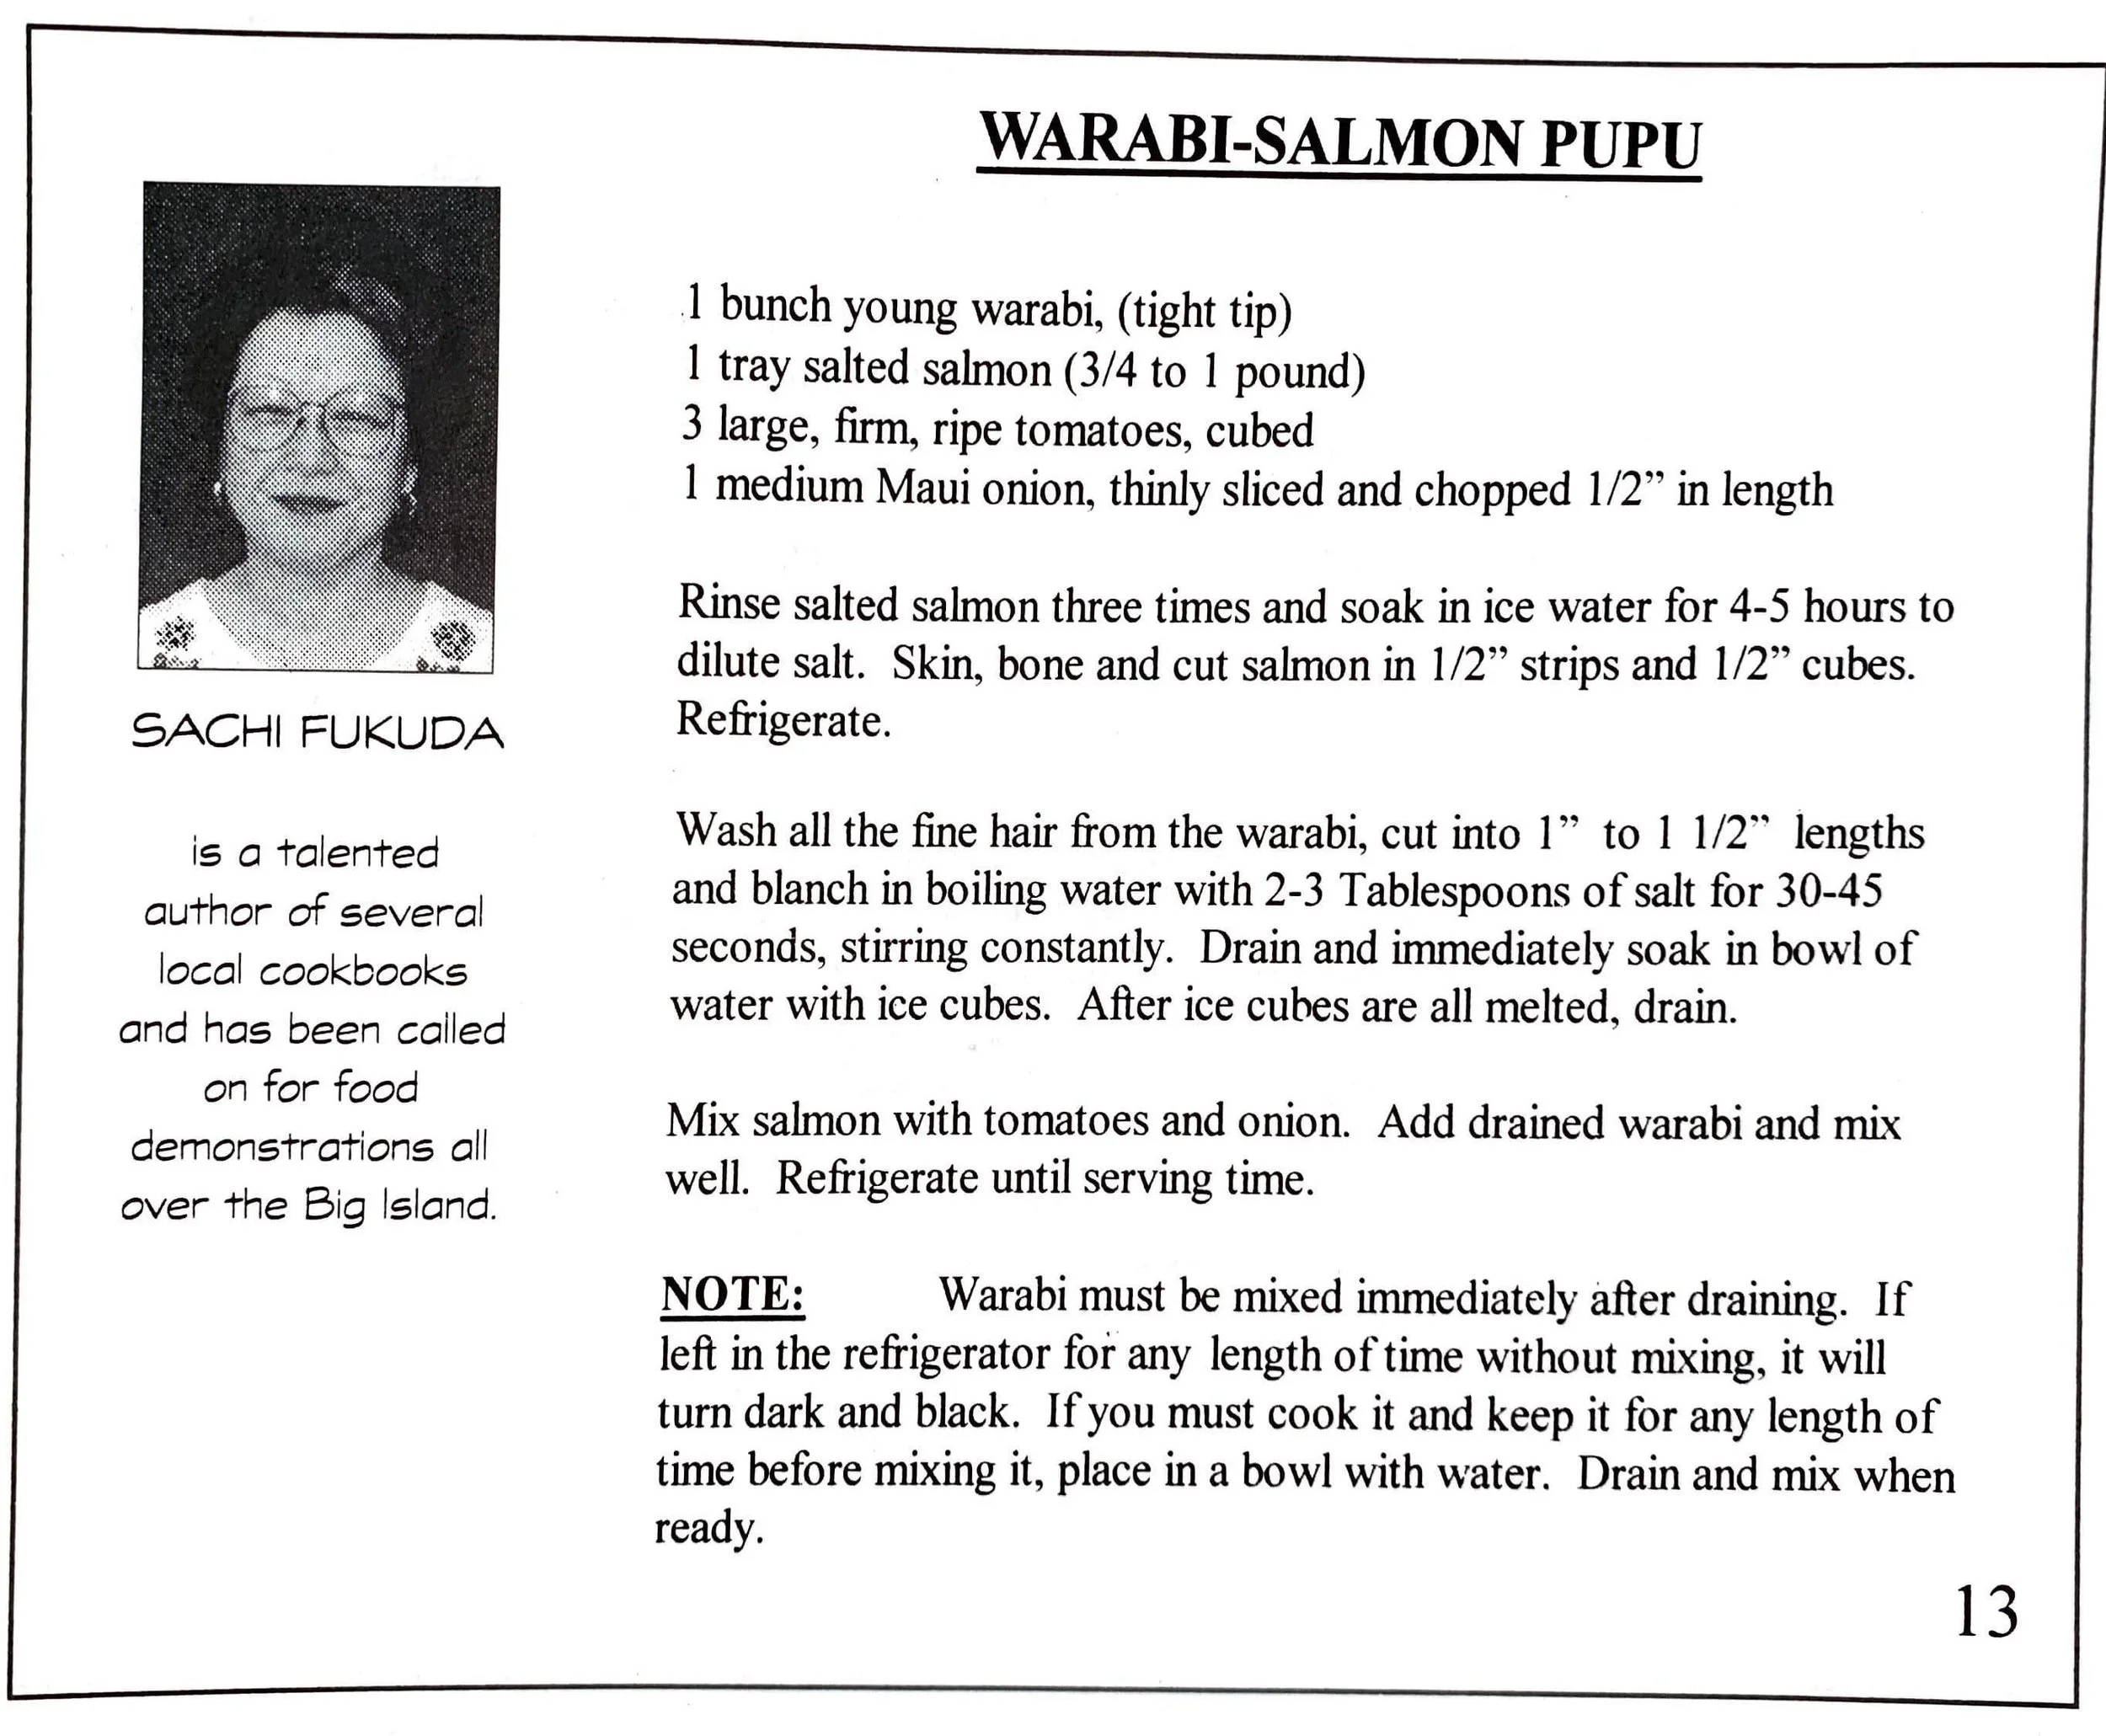 WARABI-SALMON PUPU
1 bunch young warabi, (tight tip)
1 tray salted salmon (3/4 to 1 pound)
3 large, firm, ripe tomatoes, cubed
1 medium Maui onion, thinly sliced and chopped 1/2” in length
Rinse salted salmon three times and soak in ice water for 4-5 hours to
dilute salt.  Skin, bone and cut salmon in 1/2” strips and 1/2” cubes.
Refrigerate.
Wash all the fine hair from the warabi, cut into 1”  to 1 1/2”  lengths
and blanch in boiling water with 2-3 Tablespoons of salt for 30-45
seconds, stirring constantly.  Drain and immediately soak in bowl of
water with ice cubes.  After ice cubes are all melted, drain.
Mix salmon with tomatoes and onion.  Add drained warabi and mix
well.  Refrigerate until serving time.
NOTE: Warabi must be mixed immediately after draining.  If
left in the refrigerator for any length of time without mixing, it will
turn dark and black.  If you must cook it and keep it for any length of
time before mixing it, place in a bowl with water.  Drain and mix when
ready.
SACHI FUKUDA
is a talented
author of several
local cookbooks
and has been called
on for food
demonstrations all
over the Big Island.
13